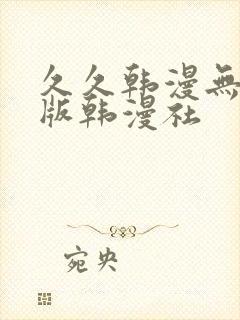 久久韩漫無
版韩漫社
宛央